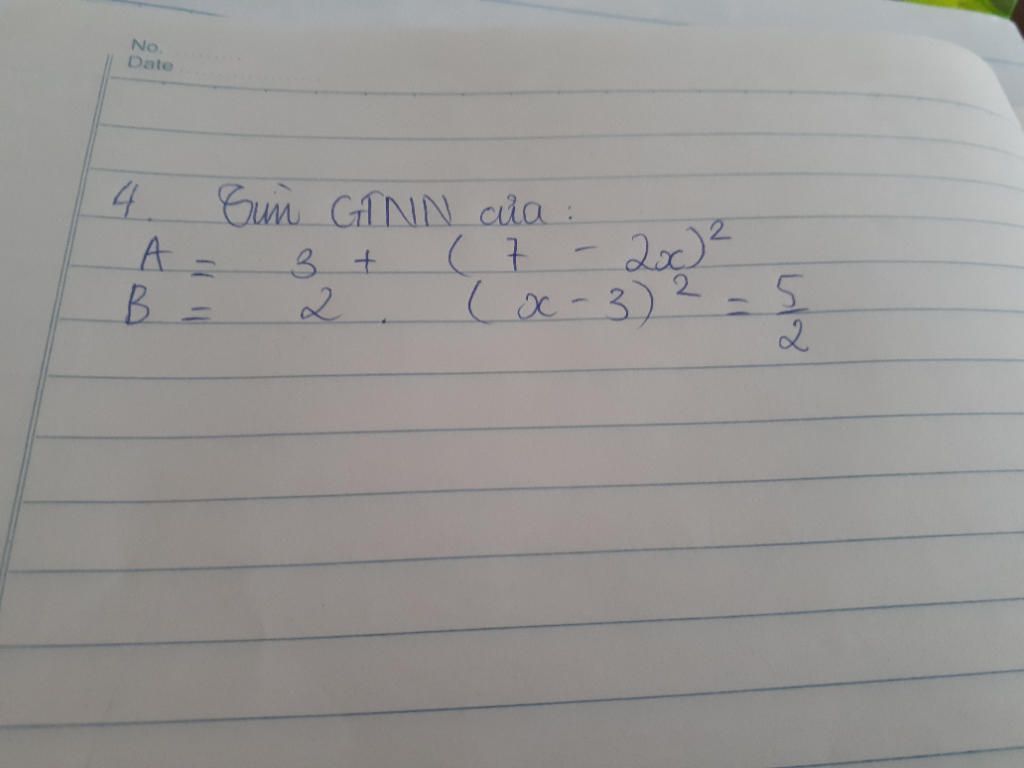 No.
Date
4. Tìm GTNN của :
A = 3 + ( 7 - 2x)²
B = 2 . ( x - 3)² = 5/2